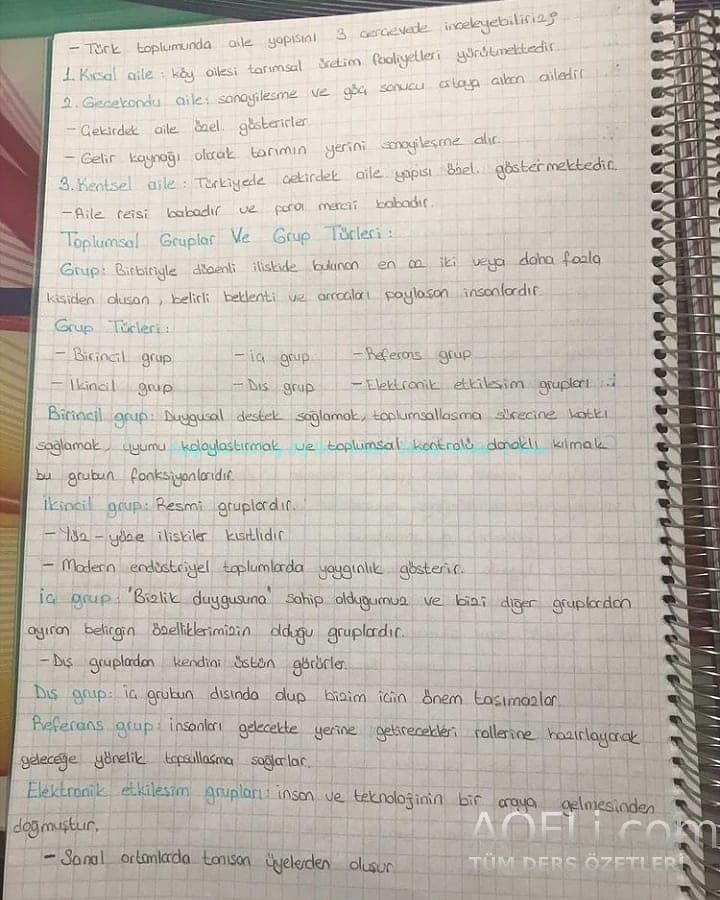 - Türk toplumunda aile yapısını 3 çerçevede inceleyebiliriz?
1. Kırsal aile: köy ailesi tarımsal üretim faaliyetleri yürütmektedir.
2. Gecekondu aile: sanayileşme ve göç sonucu ortaya çıkan ailedir
- Çekirdek aile özel. gösterirler.
- Gelir kaynağı olarak tarımın yerini sanayileşme alır.
3. Kentsel aile: Türkiyede çekirdek aile yapısı özel. göstermektedir.
- Aile reisi babadır ve para mercii babadır.
Toplumsal Gruplar Ve Grup Türleri:
Grup: Birbiriyle düzenli ilişkide bulunan en az iki veya daha fazla
kişiden oluşan, belirli beklenti ve amaçları paylaşan insanlardır.
Grup Türleri:
- Birincil grup - iç grup - Referans grup
- İkincil grup - Dış grup - Elektronik etkileşim grupları
Birincil grup: Duygusal destek sağlamak, toplumsallaşma sürecine katkı
sağlamak, uyumu kolaylaştırmak ve toplumsal kontrolü olanaklı kılmak
bu grubun fonksiyonlarıdır.
İkincil grup: Resmi gruplardır.
- Yüz-yüze ilişkiler kısıtlıdır
- Modern endüstriyel toplumlarda yaygınlık gösterir.
iç grup: 'Bizlik duygusuna' sahip olduğumuz ve bizi diğer gruplardan
ayıran belirgin özelliklerimizin olduğu gruplardır.
- Dış gruplardan kendini üstün görürler.
Dış grup: iç grubun dışında olup bizim için önem taşımazlar.
Referans grup: insanları gelecekte yerine getirecekleri rollerine hazırlayarak
geleceğe yönelik topsullaşma sağlarlar.
Elektronik etkileşim grupları: insan ve teknolojinin bir araya gelmesinden
doğmuştur.
- Sanal ortamlarda tanışan üyelerden oluşur.
AOFLi.com
TÜM DERS ÖZETLERİ